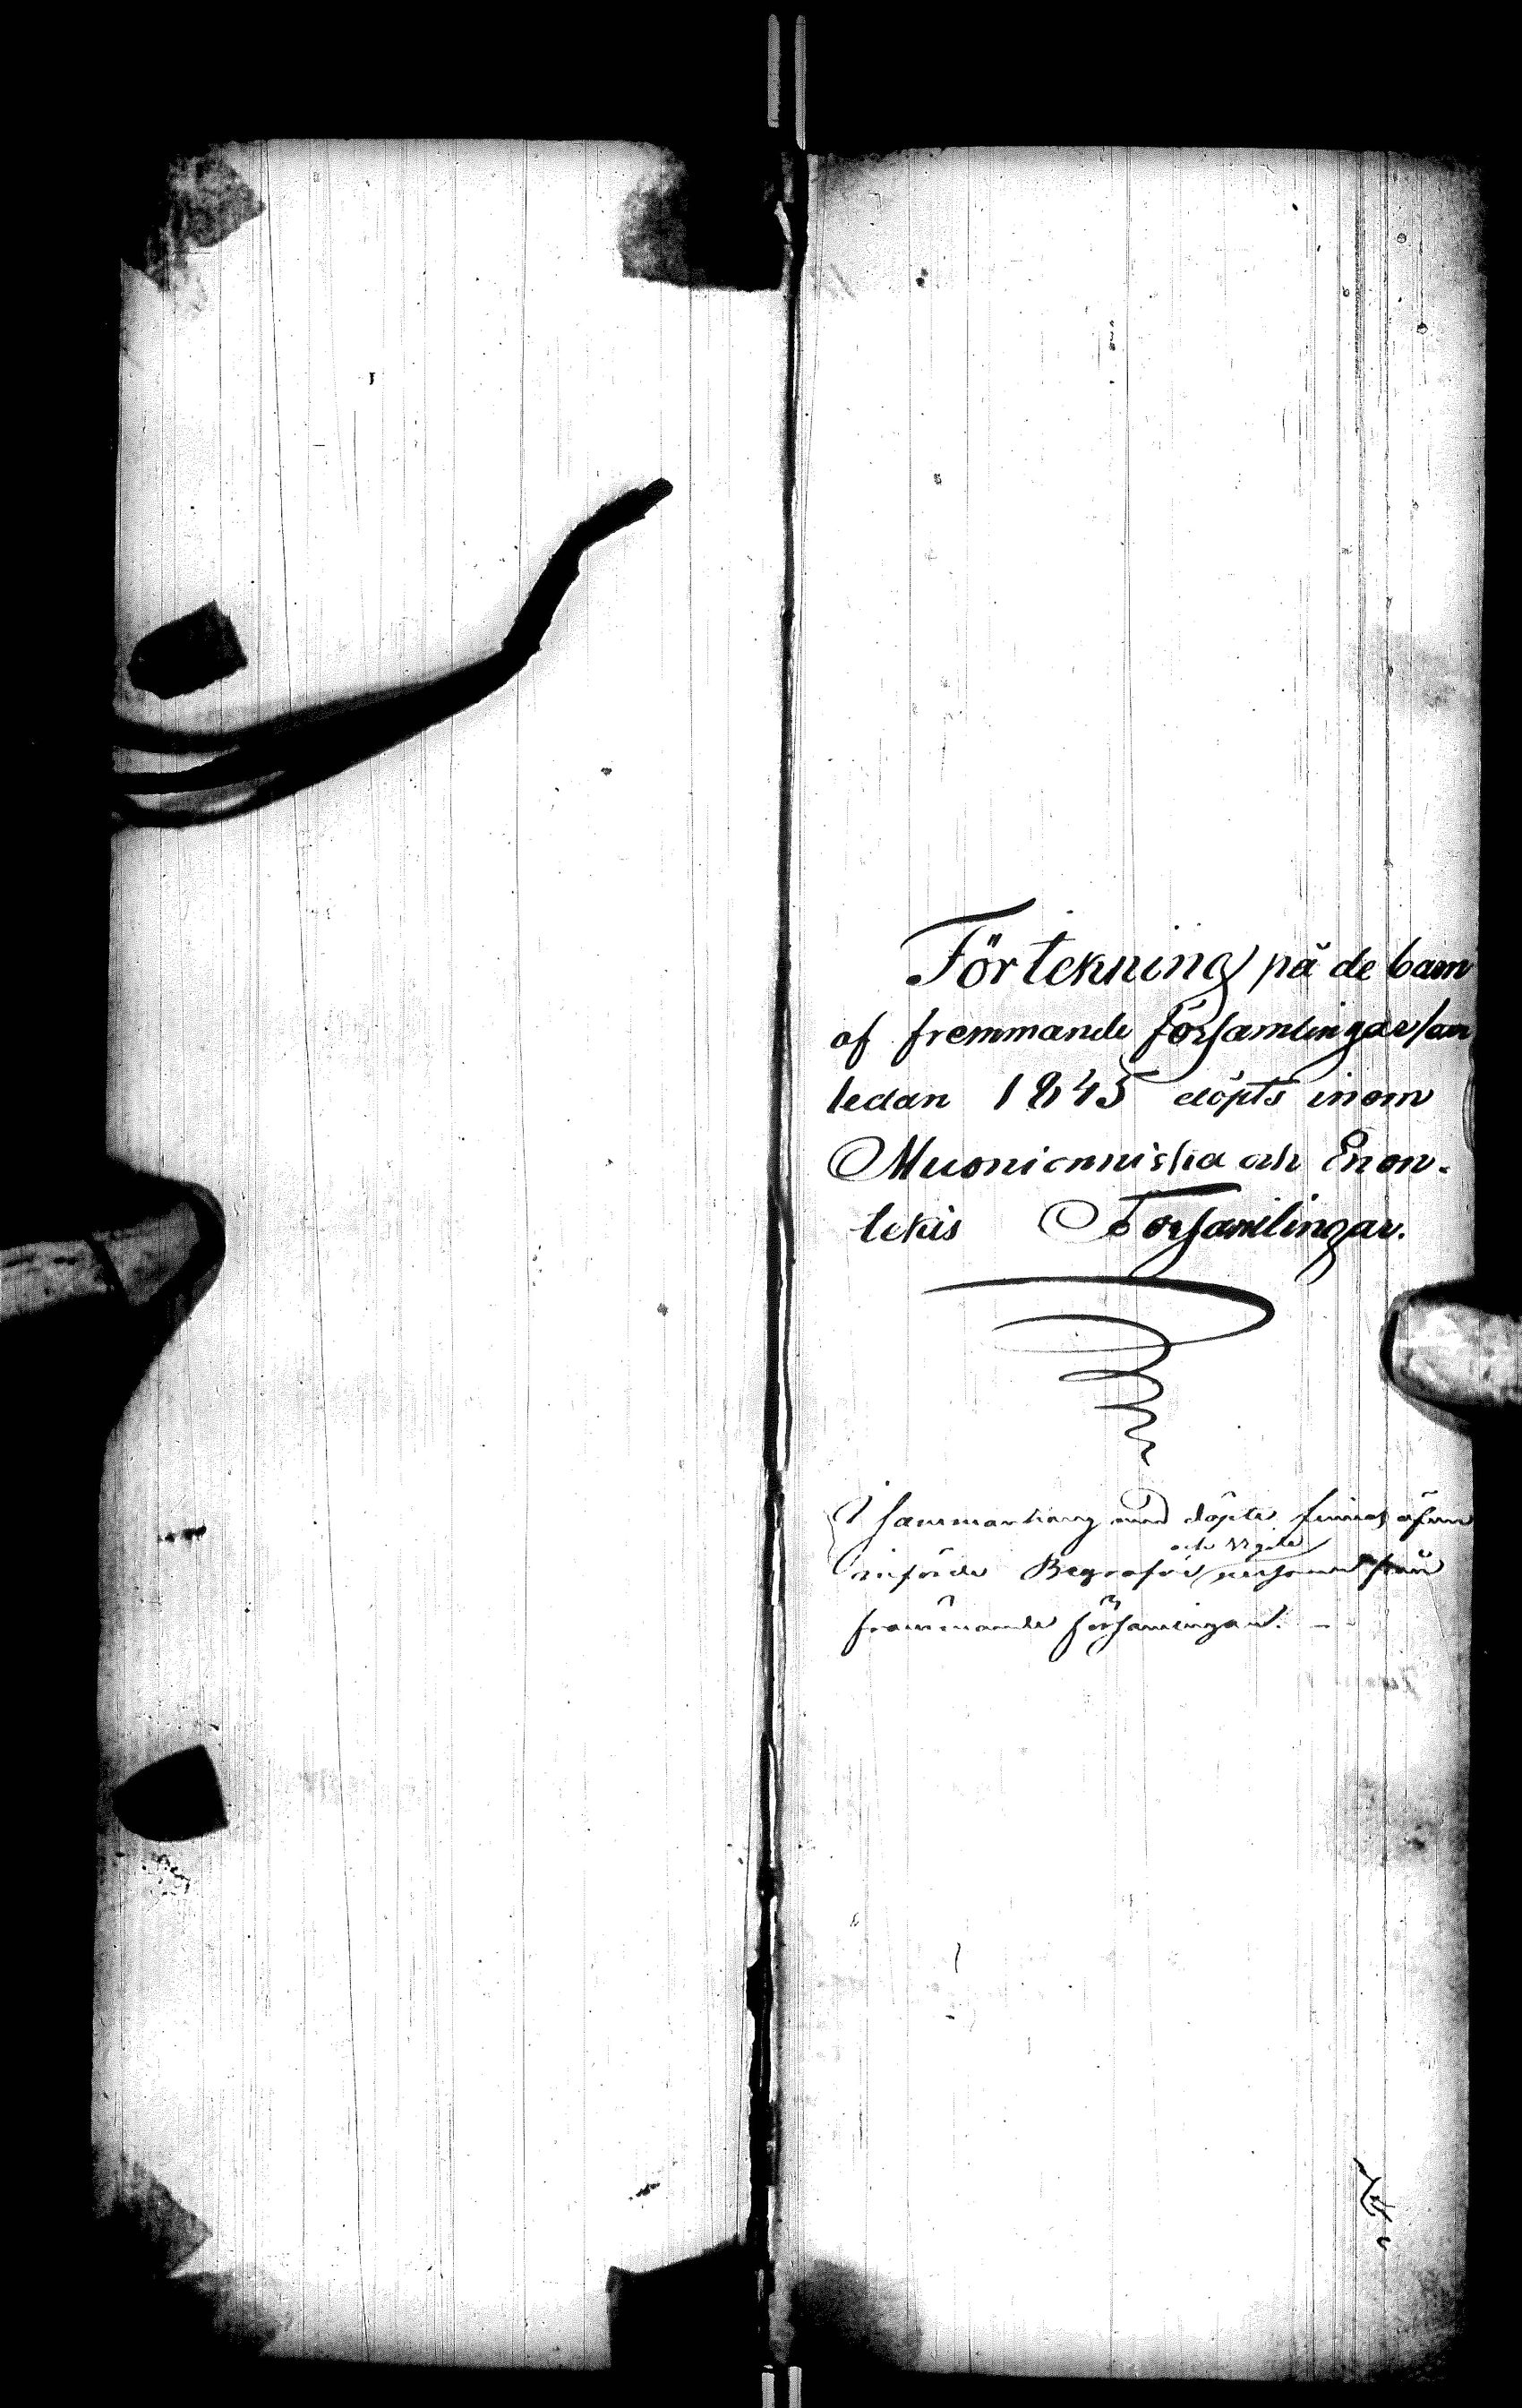 Förtekning på de barn
af fremmande församlingar, som
sedan 1845 döpts inom
Muonionniska och Enon-
tekis Församlingar.
I sammanhang med döpte finnas äfven
och Vigde
införde Begrafne personer från
främmande församlingar. —